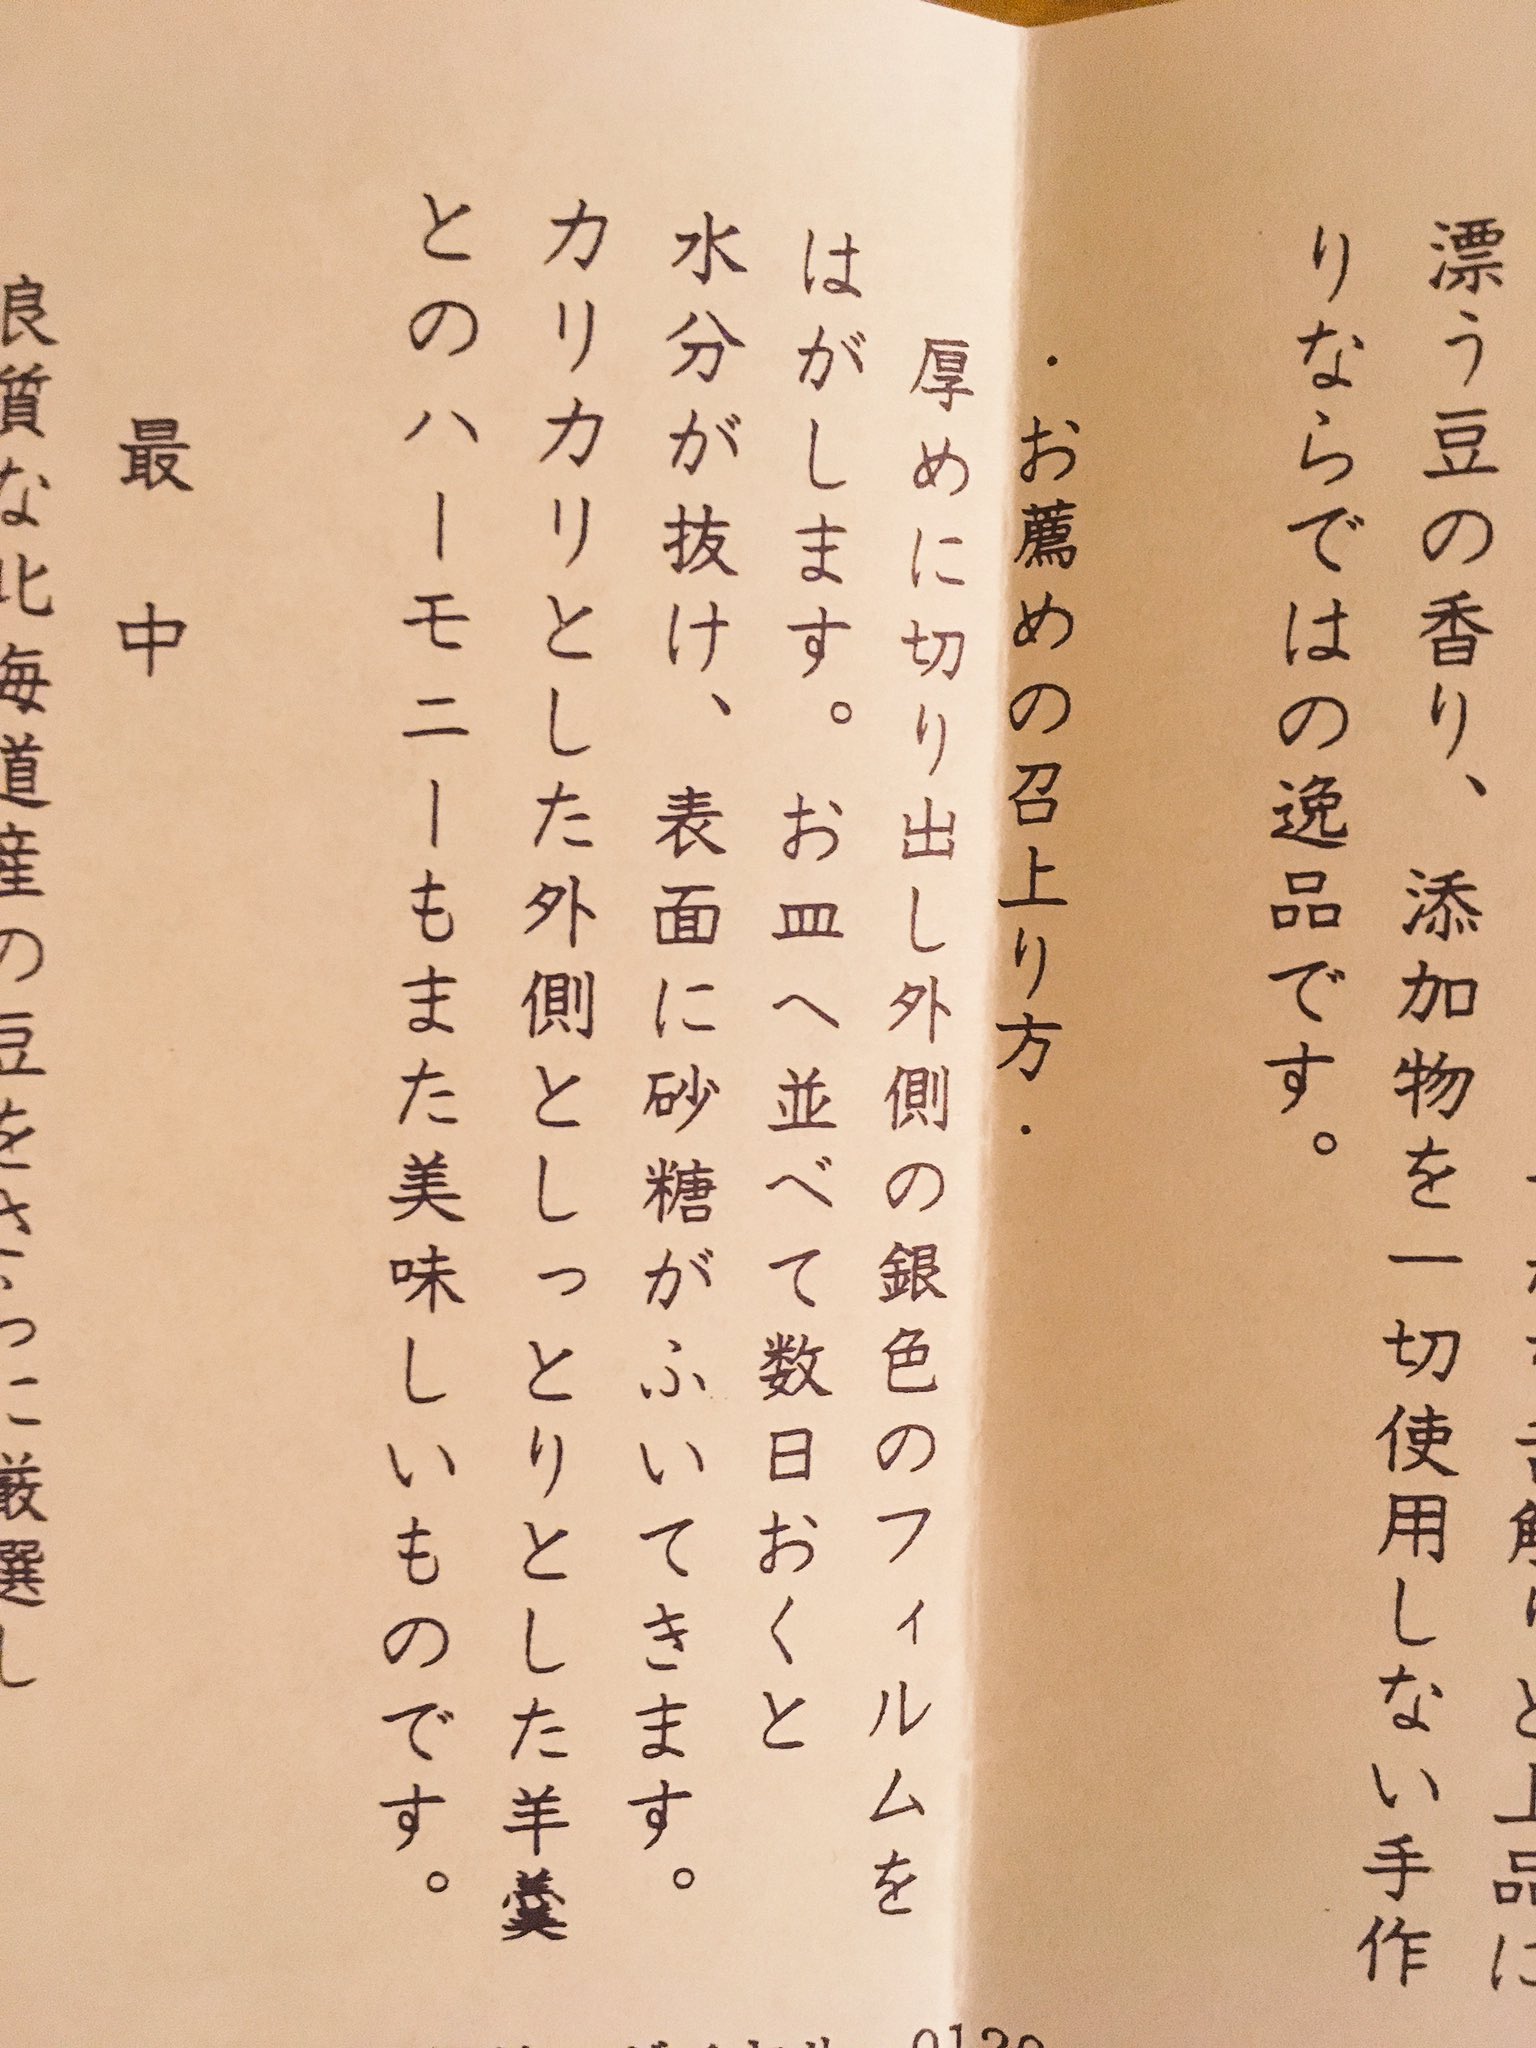 漂う豆の香り、添加物を一切使用しない手作
りならではの逸品です。
・お薦めの召上り方・
厚めに切り出し外側の銀色のフィルムを
はがします。お皿へ並べて数日おくと
水分が抜け、表面に砂糖がふいてきます。
カリカリとした外側としっとりとした羊羹
とのハーモニーもまた美味しいものです。
最中
良質な北海道産の豆をさらに厳選し
0120